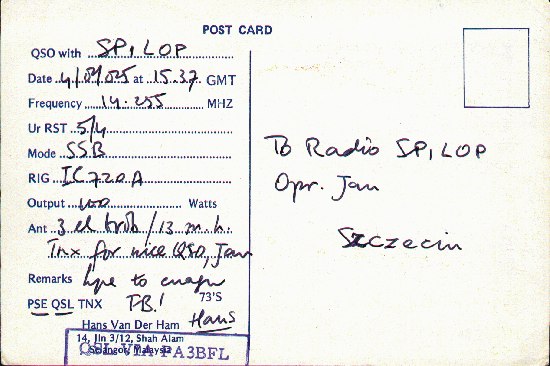 POST CARD
QSO with SP1LOP
Date 4/04/05 at 15.37 GMT
Frequency 14.255 MHZ
Ur RST 5/4
Mode SSB
RIG IC720A
Output 100 Watts
Ant 3 el trib / 13 m.h.
Tnx for nice QSO, Jan
Remarks hpe to cuagn
PSE QSL TNX FB! 73'S
Hans Van Der Ham Hans
14, Jln 3/12, Shah Alam
Selangor, Malaysia
QSL VIA PA3BFL
To Radio SP1LOP
Opr. Jan
Szczecin